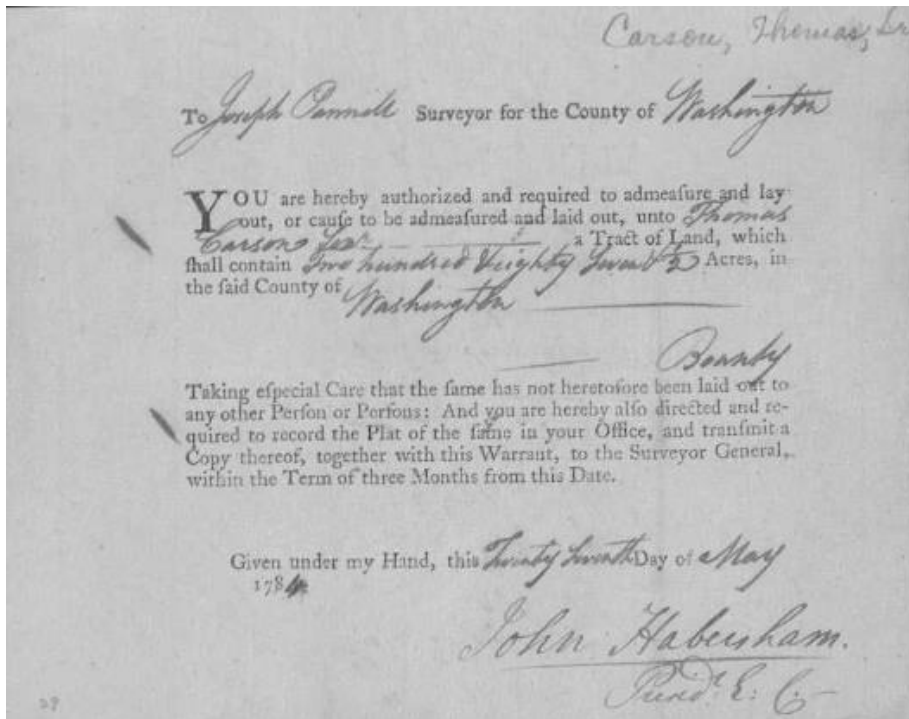 Carson, Thomas, Sr
To Joseph Pannill Surveyor for the County of Washington
YOU are hereby authorized and required to admeaſure and lay
out, or cauſe to be admeaſured and laid out, unto Thomas
Carson Senr. a Tract of Land, which
ſhall contain Two hundred & eighty Seven ½ Acres, in
the ſaid County of
Washington
Bounty
Taking eſpecial Care that the ſame has not heretofore been laid out to
any other Perſon or Perſons: And you are hereby alſo directed and re-
quired to record the Plat of the ſame in your Office, and tranſmit a
Copy thereof, together with this Warrant, to the Surveyor General,
within the Term of three Months from this Date.
Given under my Hand, this Twenty Seventh Day of May
1784
John Habersham.
Presdt. E: C: